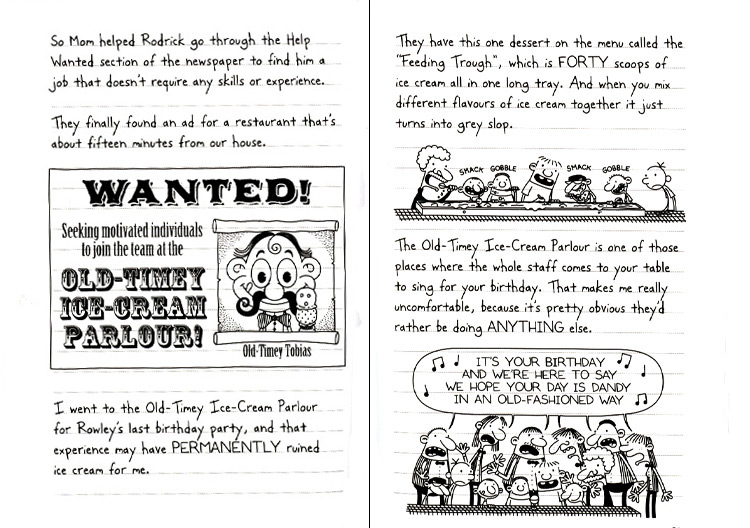 So Mom helped Rodrick go through the Help
Wanted section of the newspaper to find him a
job that doesn't require any skills or experience.
They finally found an ad for a restaurant that's
about fifteen minutes from our house.
WANTED!
Seeking motivated individuals
to join the team at the
OLD-TIMEY
ICE-CREAM
PARLOUR!
Old-Timey Tobias
I went to the Old-Timey Ice-Cream Parlour
for Rowley's last birthday party, and that
experience may have PERMANENTLY ruined
ice cream for me.
They have this one dessert on the menu called the
"Feeding Trough", which is FORTY scoops of
ice cream all in one long tray. And when you mix
different flavours of ice cream together it just
turns into grey slop.
SMACK GOBBLE SMACK GOBBLE
The Old-Timey Ice-Cream Parlour is one of those
places where the whole staff comes to your table
to sing for your birthday. That makes me really
uncomfortable, because it's pretty obvious they'd
rather be doing ANYTHING else.
IT'S YOUR BIRTHDAY
AND WE'RE HERE TO SAY
WE HOPE YOUR DAY IS DANDY
IN AN OLD-FASHIONED WAY